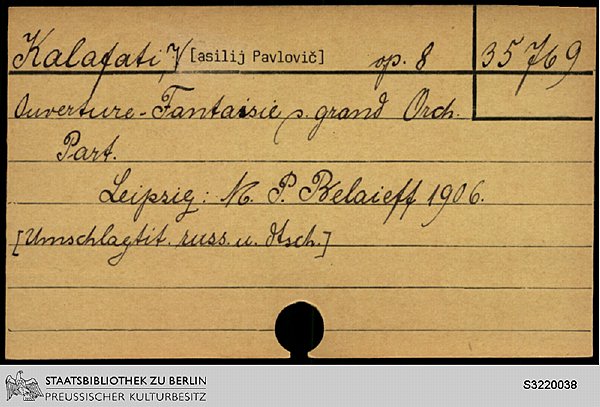 Kalafati, V[asilij Pavlovič] op. 8 35769
Ouverture-Fantaisie p. grand Orch.
Part.
Leipzig: M. P. Belaieff 1906.
[Umschlagtit. russ. u. dtsch.]
STAATSBIBLIOTHEK ZU BERLIN
PREUSSISCHER KULTURBESITZ
S3220038